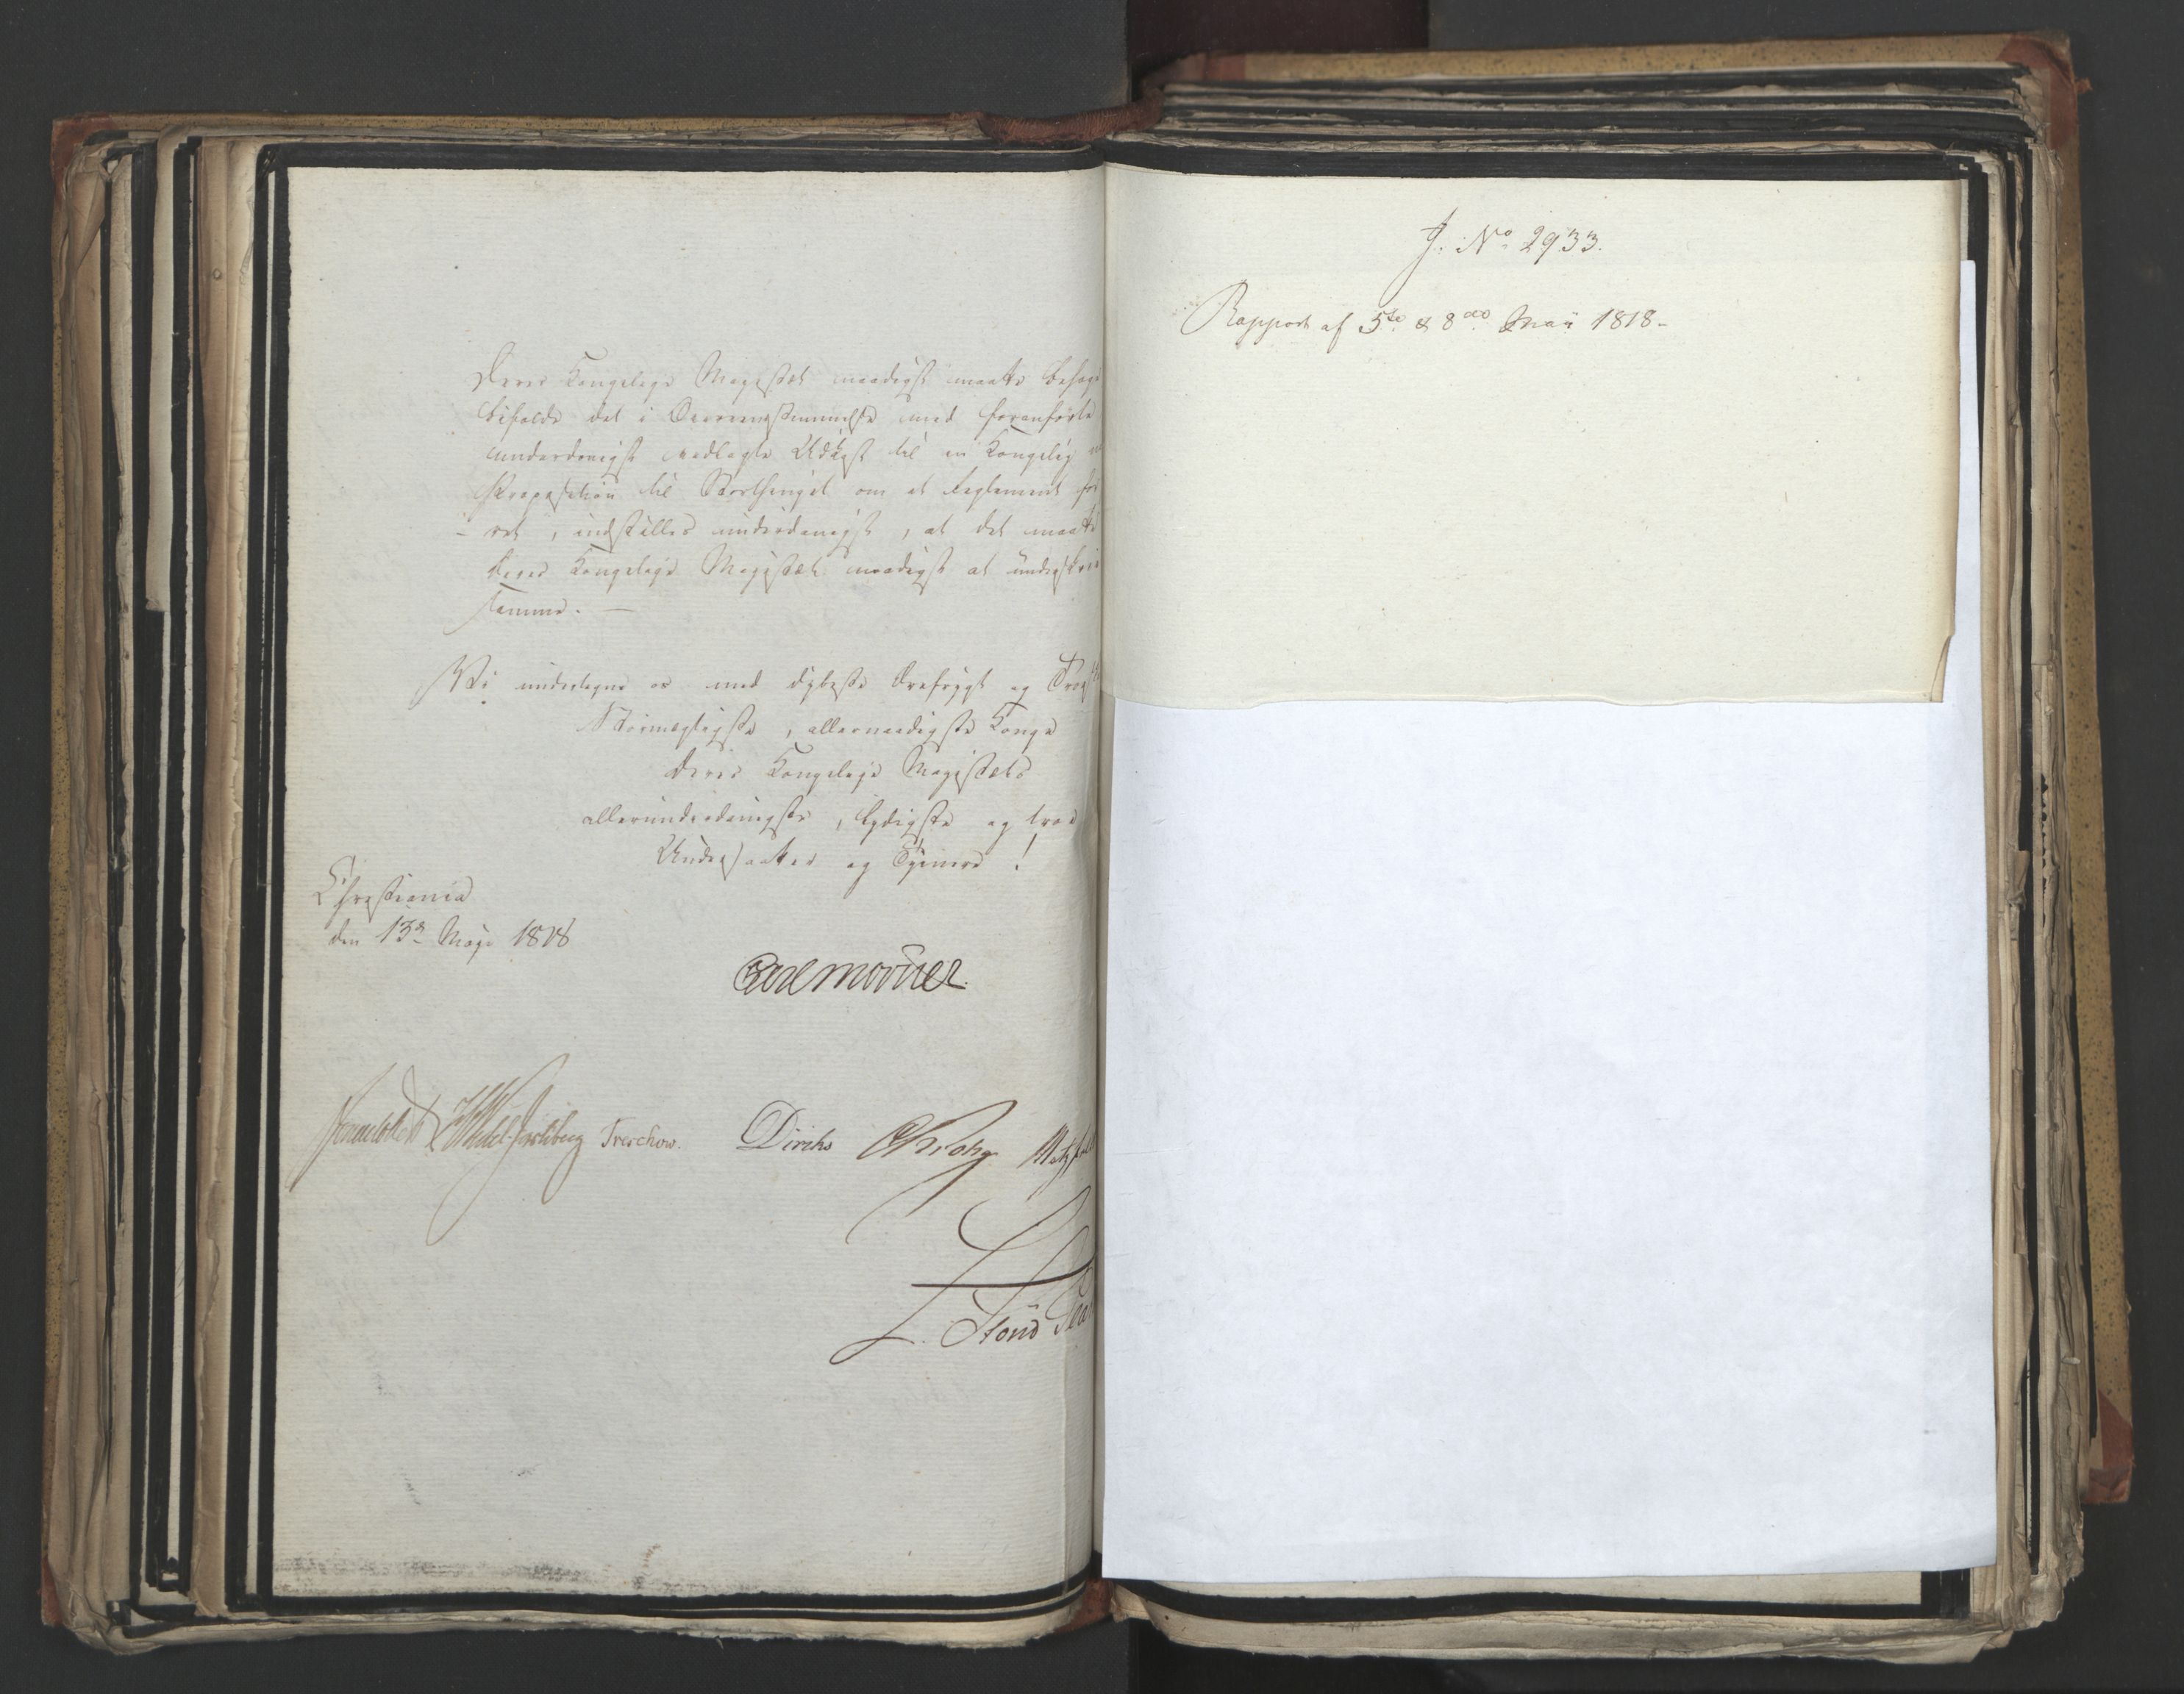 Deres Kongelige Majestæt naadigst maatte behage
bifalde det i Overeensstemmelse med foranførte
underdanigst vedlagte Udkast til en Kongelig
Proposition til Storthinget om et Reglement for
ret, indstilles underdanigst, at det maatte
Deres Kongelige Majestæt naadigst at underskrive
samme. —
Vi undertegne os med dybeste Ærefrygt og
Stormægtigste, allernaadigste Konge
Deres Kongelige Majestæts
allerunderdanigste, lydigste og troe
Undersaatter og Tjenere!
Christiania
den 13de Maji 1818
Carl Mörner
Sommerhielm HWedel-Jarlsberg Treschow. Diriks CKrohg Motzfeldt
L. Stoud Pla
J: No 2933.
Rapport af 5te & 8de Maii 1818-